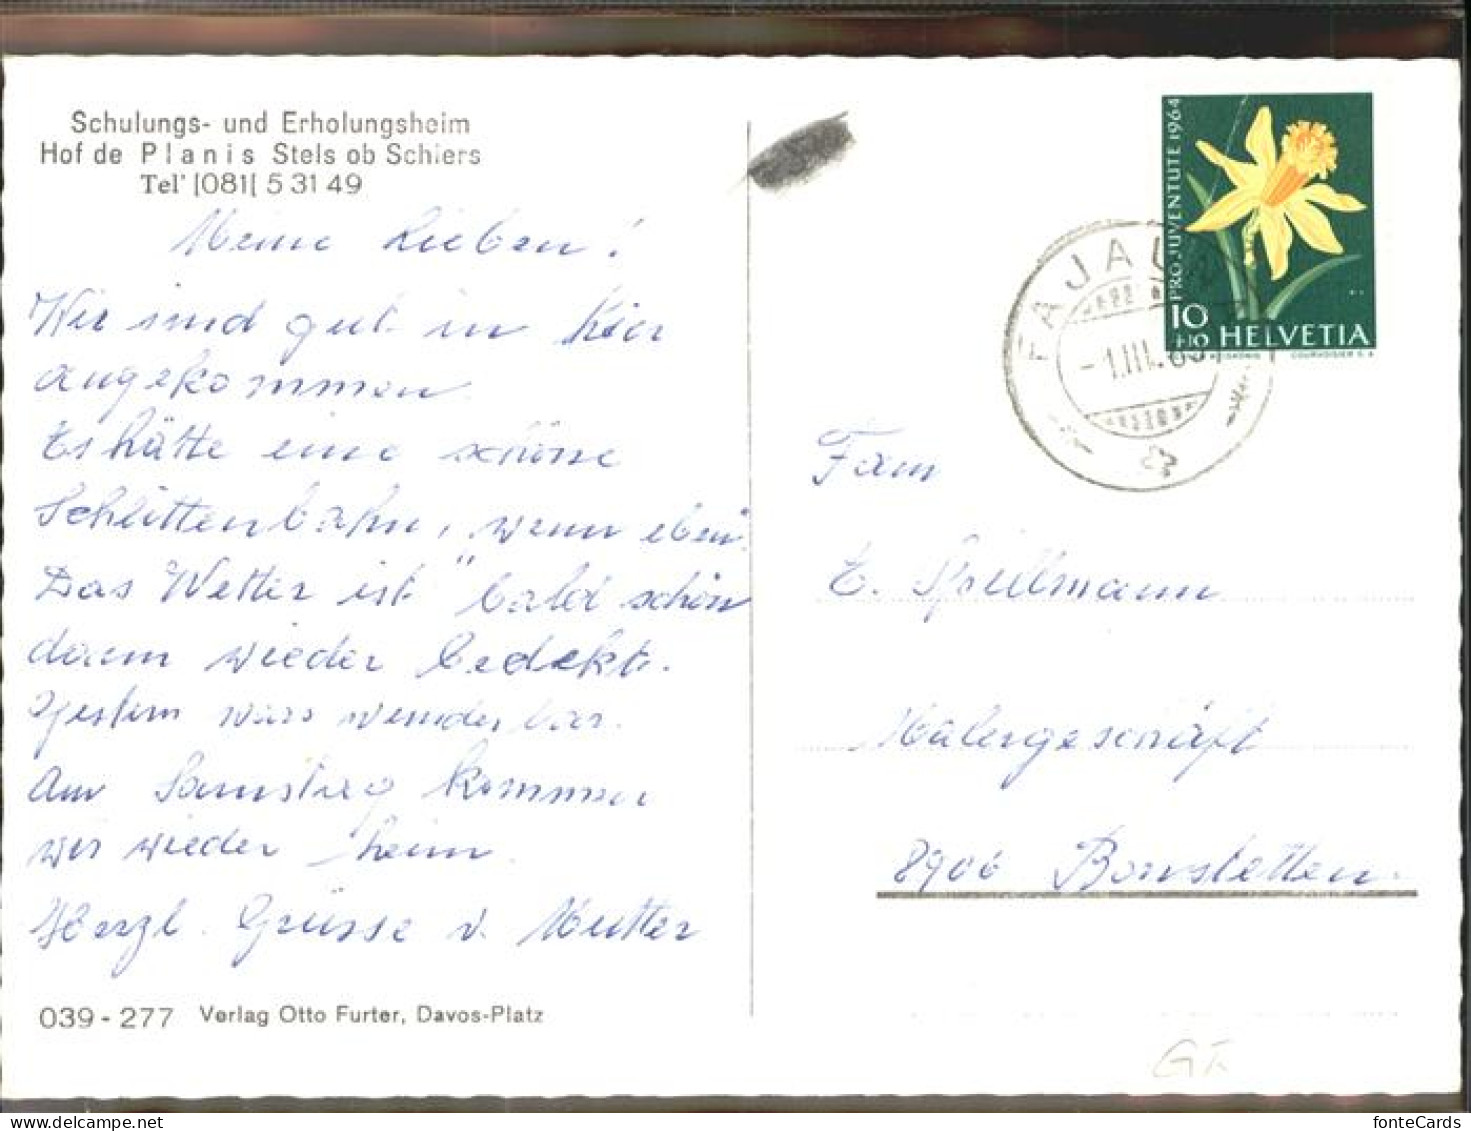 Schulungs- und Erholungsheim
Hof de Planis Stels ob Schiers
Tel' [081[ 5 31 49
Meine Lieben!
Wir sind gut in hier
angekommen
Es hätte eine schöne
Schlittenbahn, wenn eben
Das Wetter ist "bald schön
dann wieder bedekt.
Gestern wars wunderbar.
Am Samstag kommen
wir wieder heim.
Herzl. Grüsse v. Mutter
039 - 277 Verlag Otto Furter, Davos-Platz
PRO JUVENTUTE 1964
10
+10 HELVETIA
COURVOISIER S.A
FAJAU
-1.III.65
Fam
E. Spillmann
Malergeschäft
8906 Bonstetten.
fonteCards